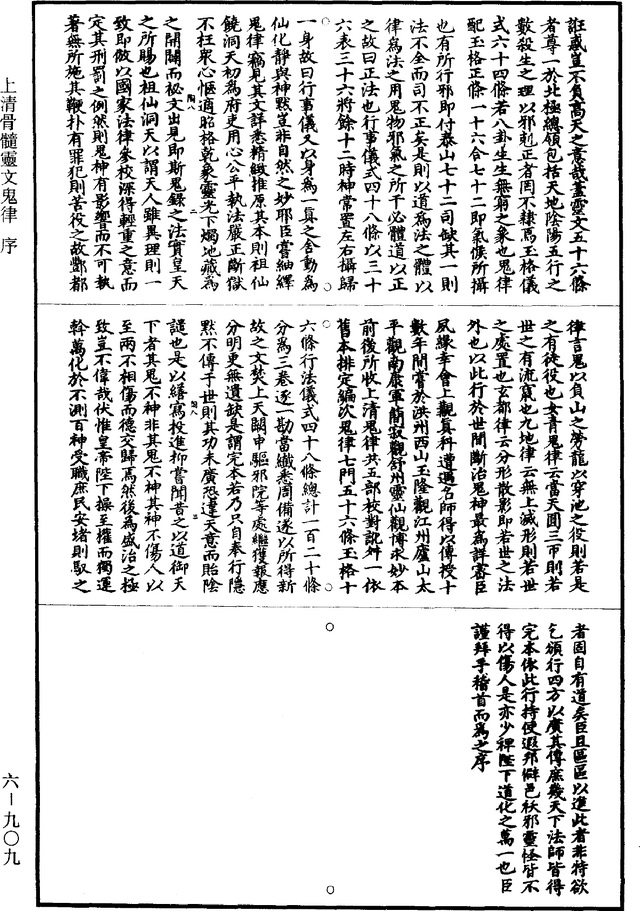 誑惑豈不負高天之意哉蓋靈文五十六條
者尊一於北極總領包括天地陰陽五行之
數殺生之理以邪剋正者罔不隸焉玉格儀
式六十四條若八卦生生無窮之象也鬼律
配玉格正條一十六合七十二即氣候所攝
也有所行邪即付泰山七十二司缺其一則
法不全而司不正矣是則以道為法之體以
律為法之用鬼物邪氣之所干必體道以正
之故曰正法也行事儀式四十八條以三十
六表三十六將餘十二時神常置左右攝歸
一身故曰行事儀又以身為一真之舍動為
仙化靜與神默豈非自然之妙耶臣嘗紬繹
鬼律竊見其文詳悉精緻推原其本則祖仙
饒洞天初為府吏用心公平執法嚴正斷獄
不枉眾心愜適昭格乾象靈光下燭地藏為
之開闢而祕文出見即斯鬼錄之法實皇天
之所賜也祖仙洞天以謂天人雖異理則一
致即倣以國家法律參校深得輕重之意而
定其刑罰之例然則鬼神有影響而不可執
著無所施其鞭扑有罪犯則苦役之故酆都
律言鬼以負山之勞龍以穿池之役則若是
之有徒役也女青鬼律云當天圓三帀則若
世之有流竄也九地律云無上滅形則若世
之處置也玄都律云分形散影即若世之法
外也以此行於世間斷治鬼神最為詳審臣
夙緣幸會上觀真科遭遇名師得以傳授十
數年間嘗於洪州西山玉隆觀江州廬山太
平觀南康軍簡寂觀舒州靈仙觀博求妙本
前後所收上清鬼律共五部校對訛舛一依
舊本排定編次鬼律七門五十六條玉格十
六條行法儀式四十八條總計一百二十條
分為三卷逐一勘當纖悉周備遂以所得新
故之文焚上天闕申驅邪院等處繼獲報應
分明更無遺缺是謂完本若乃只自奉行隱
默不傳于世則其功未廣恐違天意而貽陰
譴也是以繕寫投進抑嘗聞昔之以道御天
下者其鬼不神非其鬼不神其神不傷人以
至兩不相傷而德交歸焉然後為盛治之極
致豈不偉哉伏惟皇帝陛下操至權而獨運
斡萬化於不測百神受職庶民安堵則馭之
者固自有道矣臣且區區以進此者非特欲
乞頒行四方以廣其傳庶幾天下法師皆得
完本依此行持使遐邦僻邑妖邪靈怪皆不
得以傷人是亦少裨陛下道化之萬一也臣
謹拜手稽首而為之序
上清骨髓靈文鬼律 序
六-九〇九